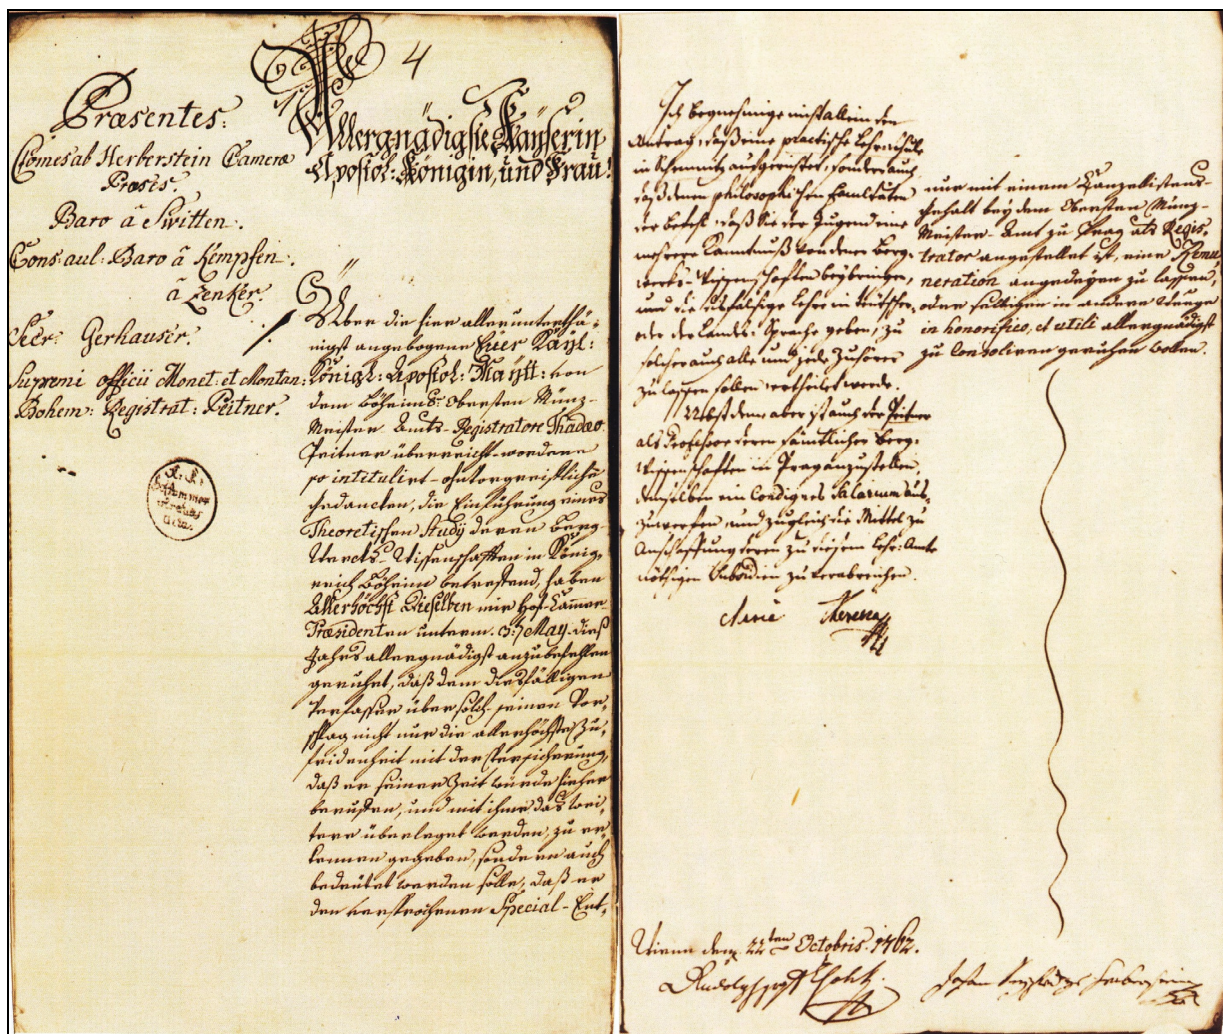 4
Præsentes:
Comes ab Herberstein Cameræ
Præses.
Baro â Switten.
Cons: aul: Baro â Kempfen.
â Zenker.
Secr: Gerhauser.
Supremi officii Monet: et Montan:
Bohem: Registrat: Peitner.
Allergnädigste Kayserin
Apostol: Königin, und Frau!
Über die hier allerunterthä-
nigst angebogene Euer Kayl:
Königl: Apostol: Maytt: von
dem Böheim: Obersten Münz-
Meister-Amts-Registratore Thadæo
Peitner überreicht-wordene
so intitulirt-ohnvorgreifliche
Gedancken, die Einführung eines
Theoretischen Study deren Berg-
Wercks-Wissenschafften in König-
reich Böheim betreffend, haben
Allerhöchst Dieselben mir Hof-Cammer-
Præsidenten unterm 3:t May dieß
Jahrs allergnädigst anzubefehlen
geruhet, daß dem diesfälligen
Verfasser über solch-seinen Vor-
schlag nicht nur die allerhöchste Zu-
fridenheit mit der Versicherung,
daß er seiner Zeit würde hieher
beruffen, und mit ihme das wei-
tere überleget werden, zu er-
kennen gegeben, sondern auch
bedeutet werden solle, daß er
den versprochenen Special-Ent-
Ich begnehmige nicht allein den
Antrag, daß eine practische Lehrschule
in Schemnitz aufgerichtet, sonder auch
daß denen philosophischen Facultäten
der befehl, daß Sie der Jugend eine
mehrere Kanntnuß von denen Berg-
wercks-Wissenschaften beybringen,
und die diesfählige Lehre in teutscher
oder der Landes-Sprache geben, zu
solcher auch alle und jede Zuhörer
zu lassen sollen, ertheilet werde.
Nebst deme aber ist auch der Peitner
als Professor deren sämtlicher Berg-
Wissenschaften in Prag anzustellen,
demselben ein Condignes Salarium aus-
zuwerfen, und zugleich die Mittel zu
Anschaffung deren zu diesem Lehr-Amte
nöthigen Subsidien zu verabreichen.
Maria Theresia
nur mit einem Canzellistens-
Gehalt bey dem Obersten Münz-
Meister-Amt zu Prag als Regis-
trator angestellet ist, eine Remu-
neration angedeyen zu lassen,
oder selbigen in andere Weege
in honorifico, et utili allergnädigst
zu Consoliren geruhen wollen.
Wienn den 22ten Octobris 1762.
Rudolph Chotek
Johan Herberstein